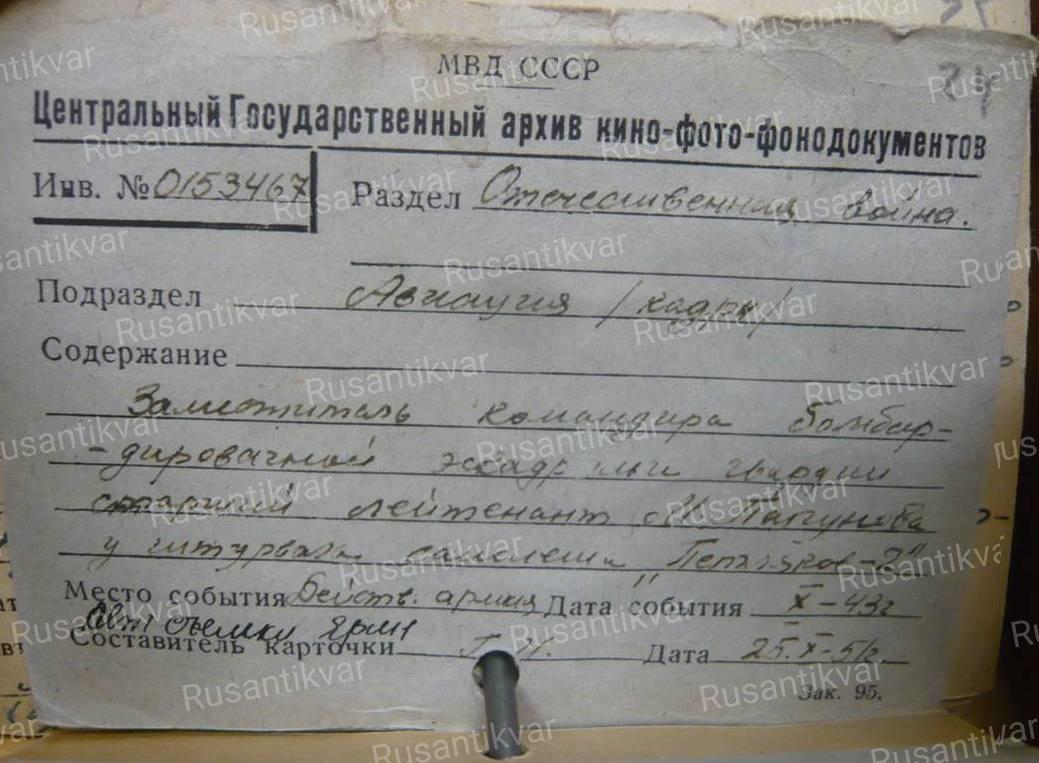 24
МВД СССР
Центральный Государственный архив кино-фото-фонодокументов
Инв. № 0153467 Раздел Отечественная война.
Подраздел Авиация /кадры/
Содержание
Заместитель командира бомбар-
-дировочной эскадрильи гвардии
старший лейтенант М.
у штурвала самолета "Петляков-2"
Место события Действ. армия Дата события X-43г
Авт съемки
Составитель карточки Дата 25.X-51г.
Зак. 95.
Rusantikvar